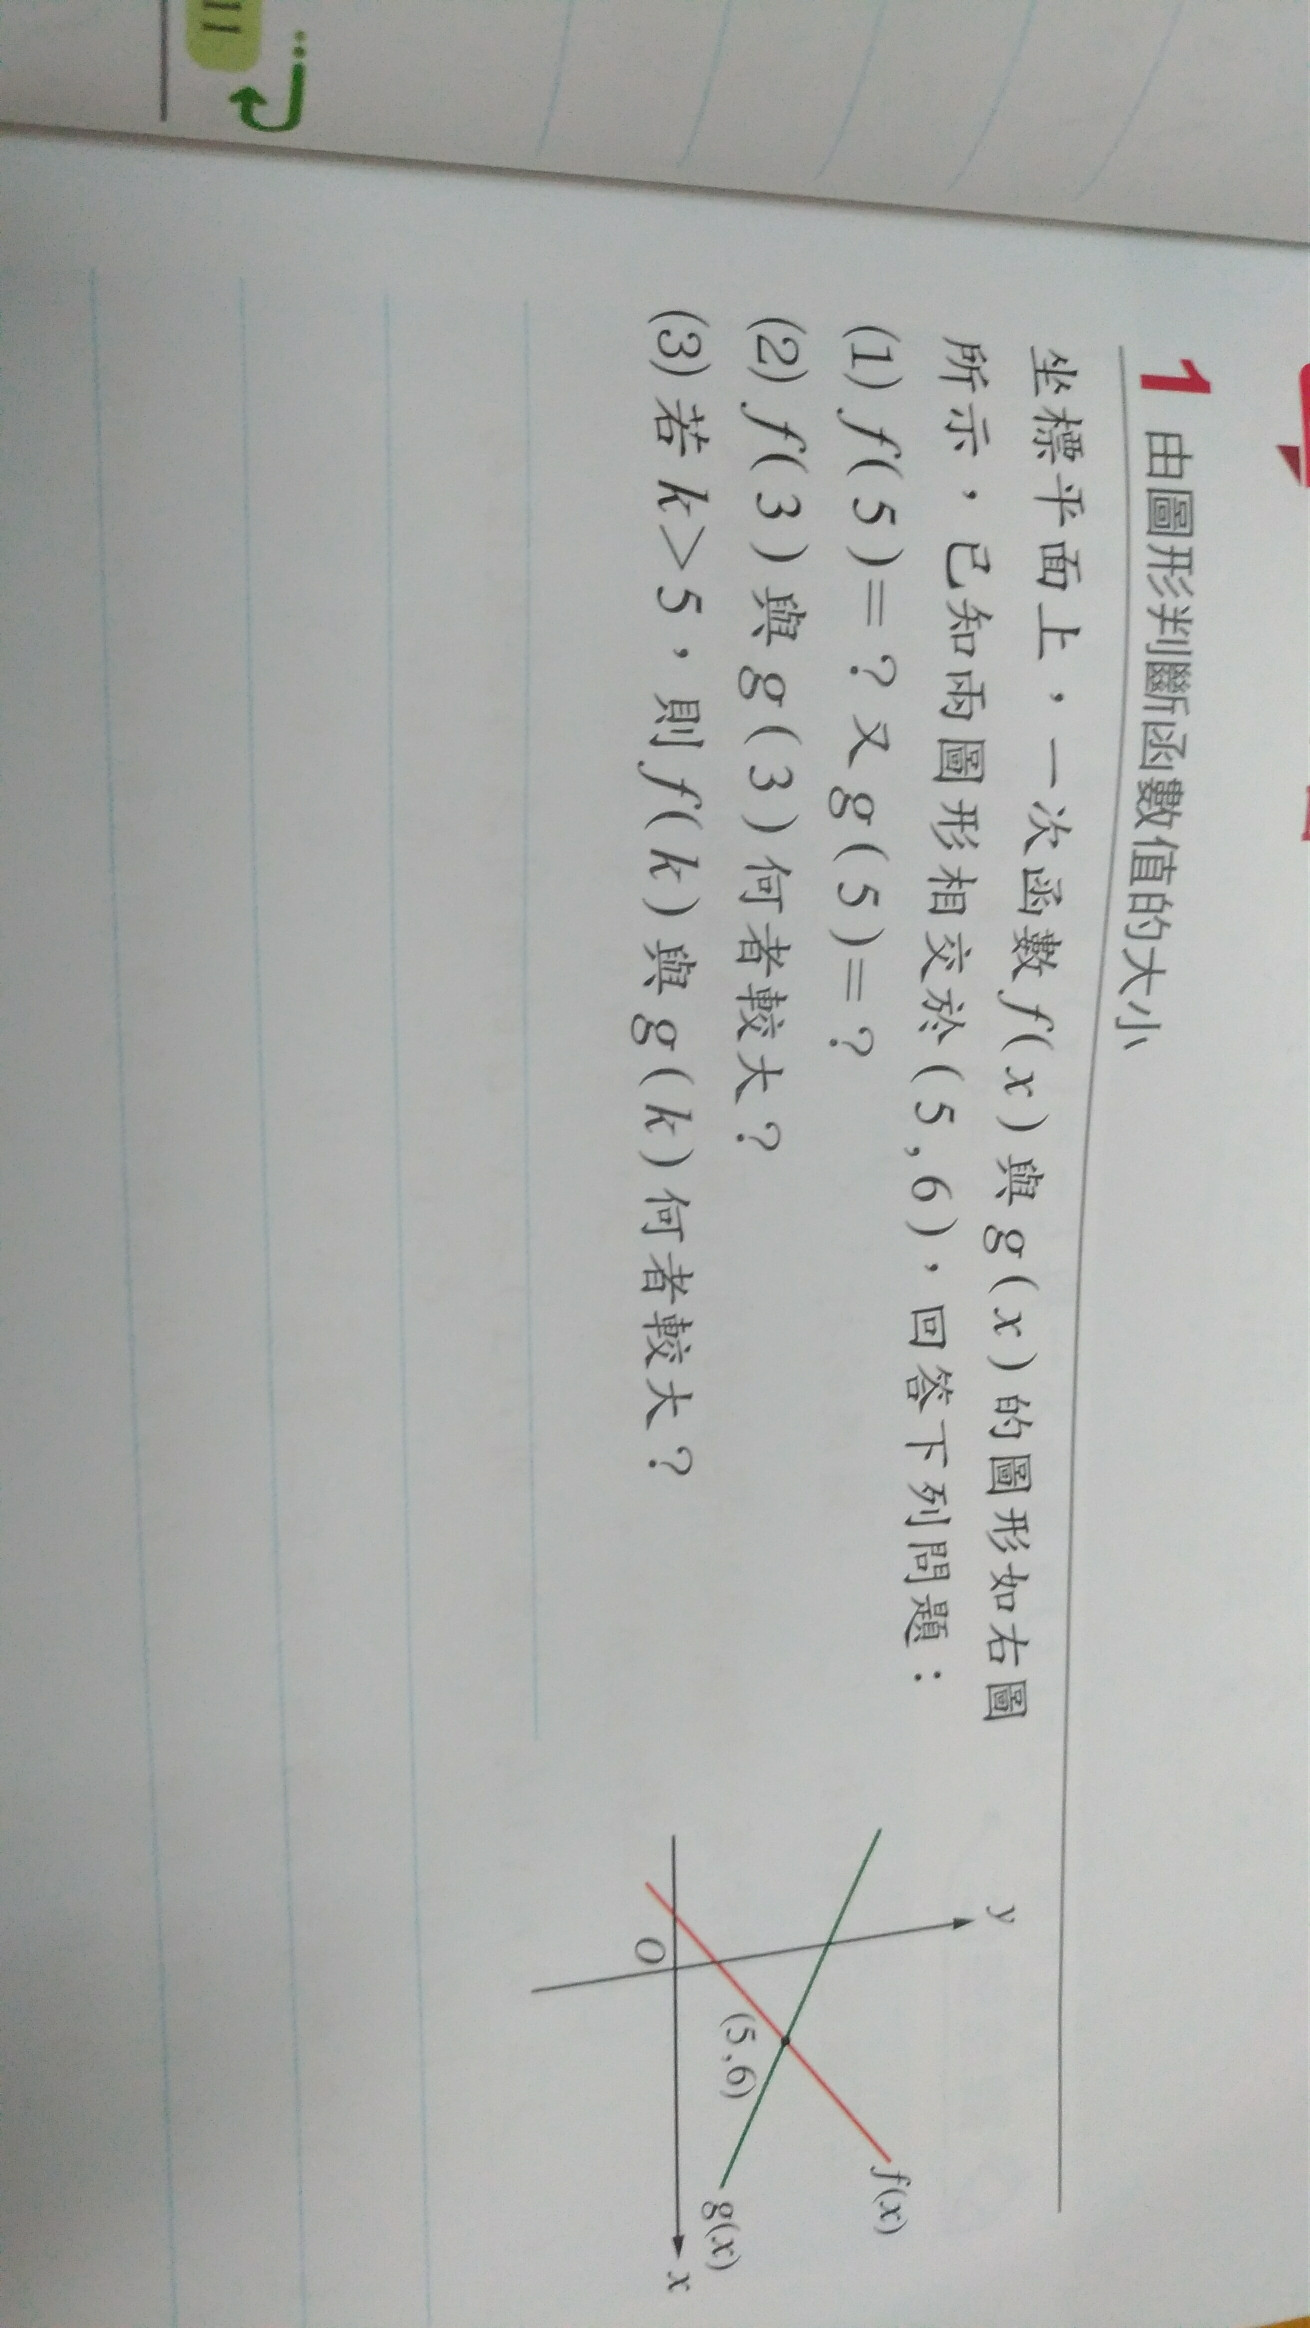 1 由圖形判斷函數值的大小
坐標平面上，一次函數 f(x) 與 g(x) 的圖形如右圖
所示，已知兩圖形相交於(5,6)，回答下列問題：
(1) f(5)=？又 g(5)=？
(2) f(3)與 g(3)何者較大？
(3) 若 k>5，則 f(k)與 g(k)何者較大？
y
f(x)
(5,6)
g(x)
O
x